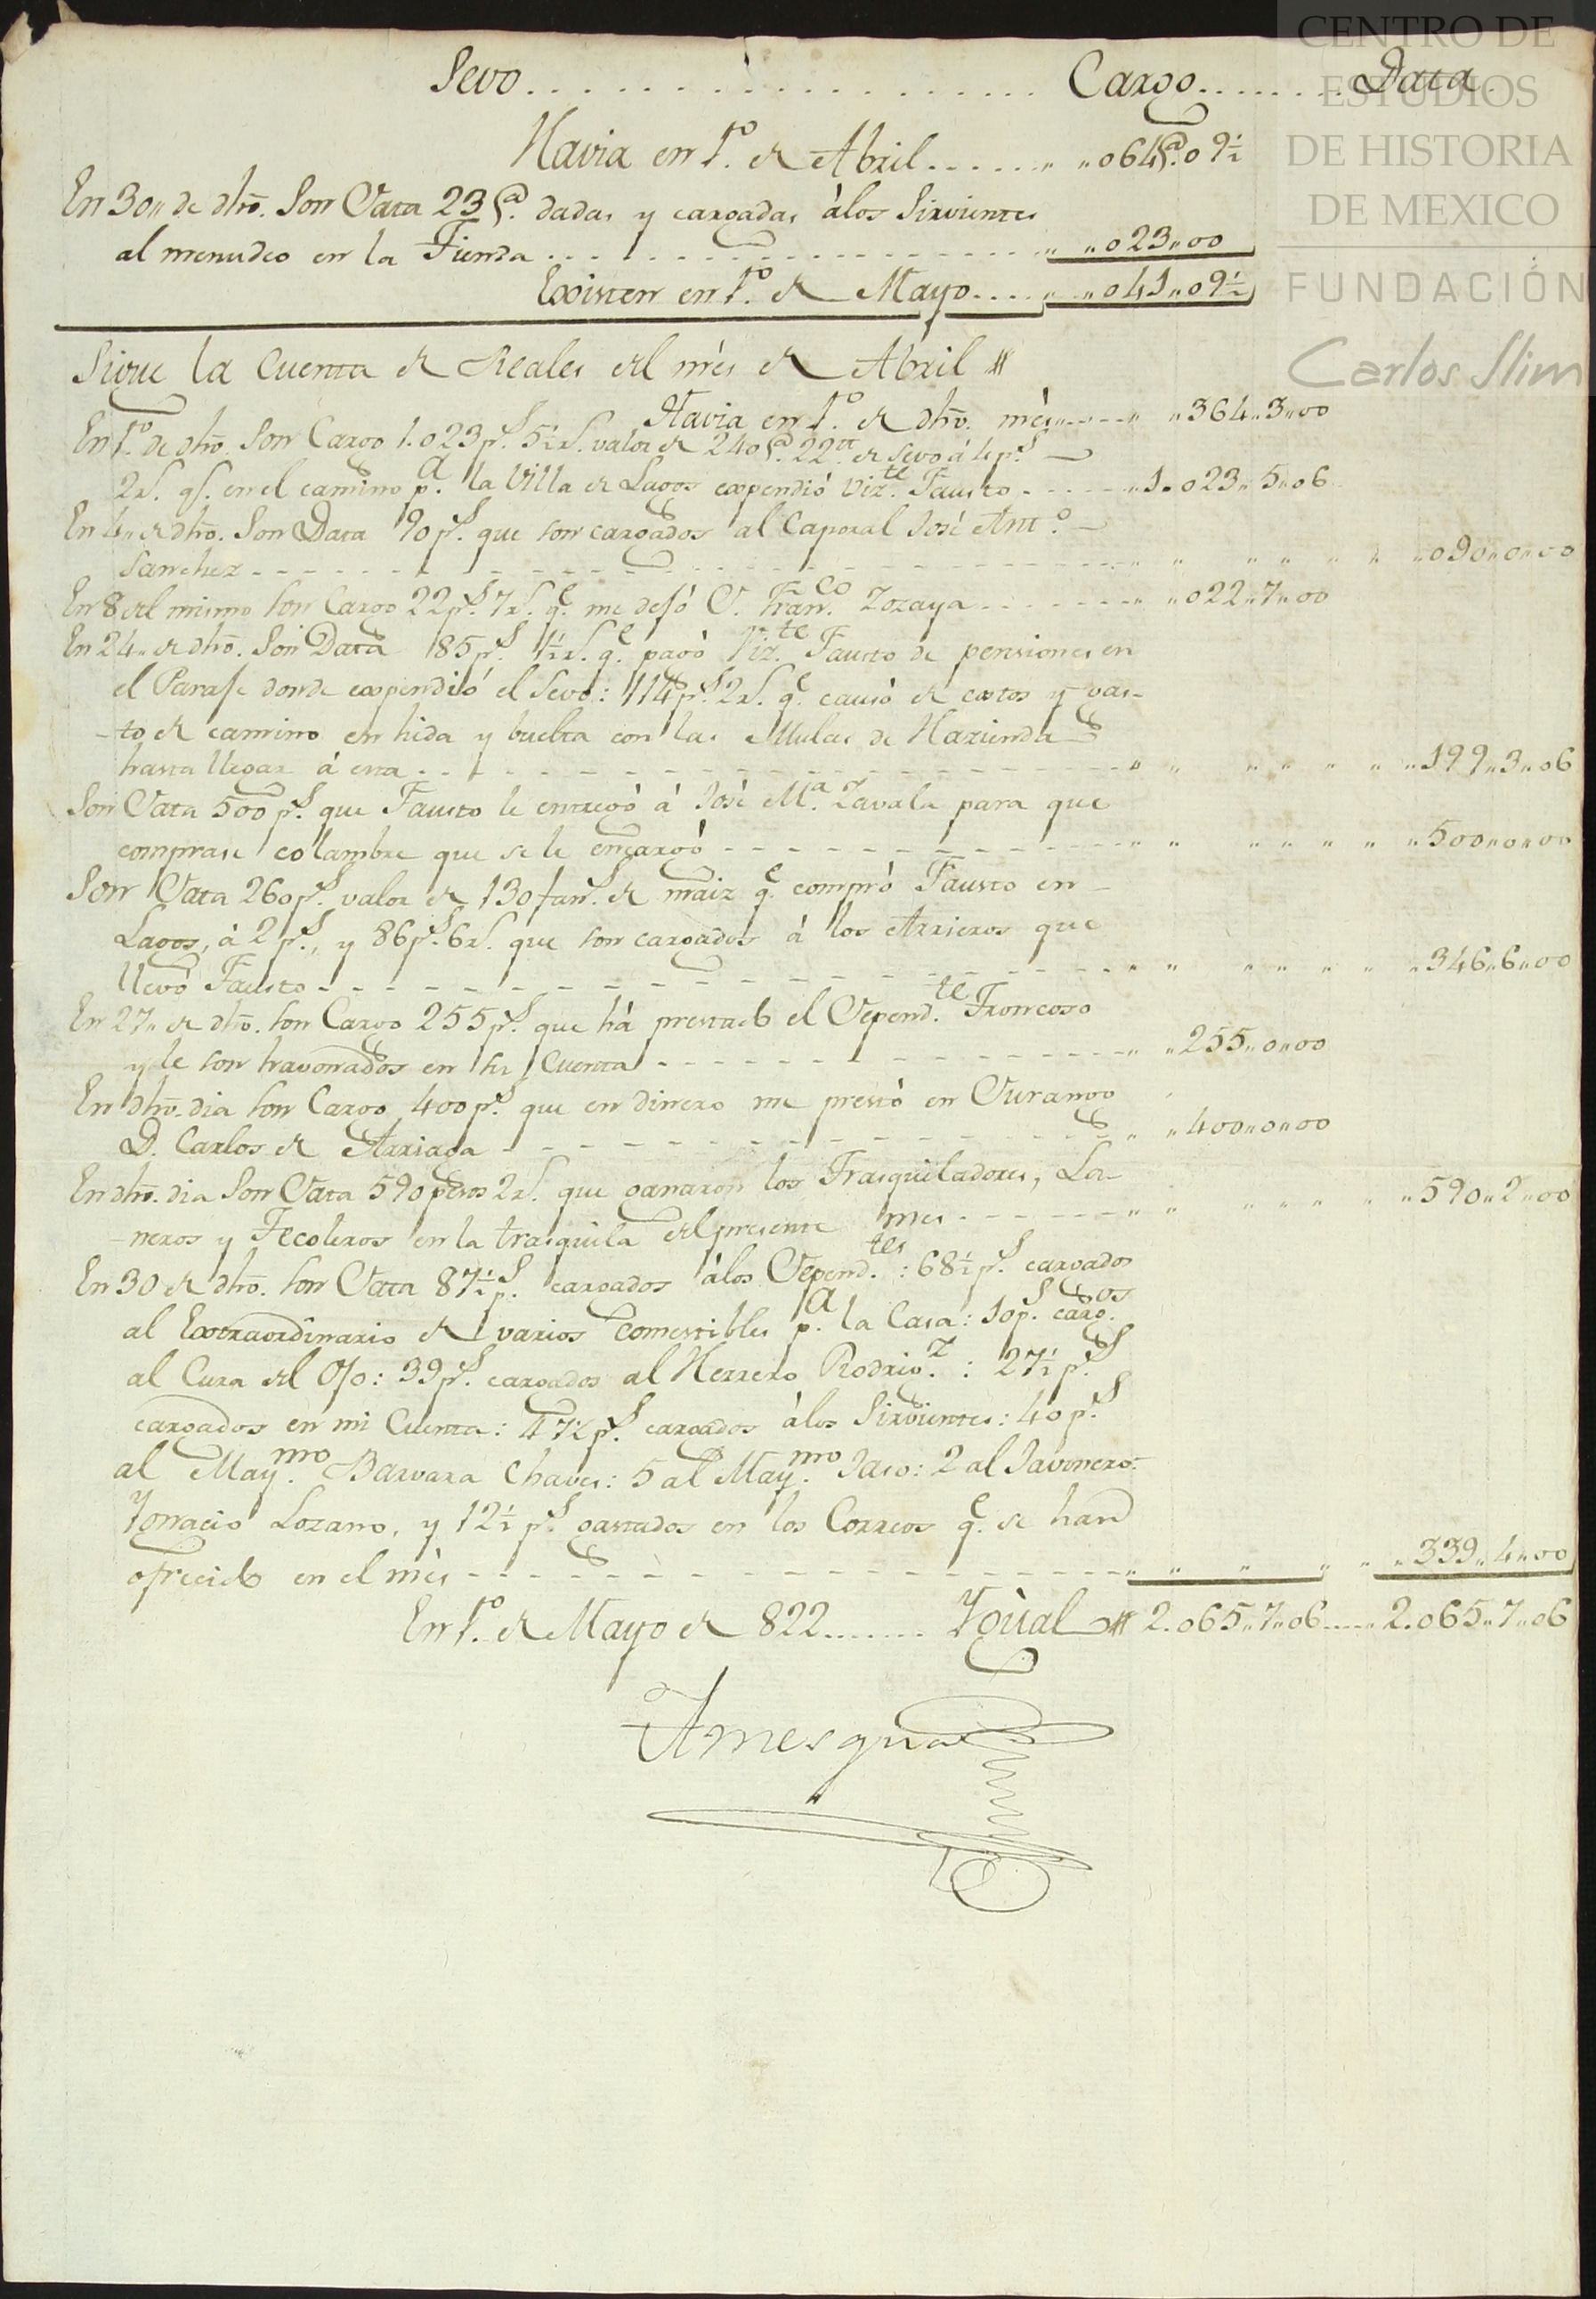 Sevo . . . . . . . . . . . . . . . . . . Cargo . . . . . . . . Data
Havia en 1º. de Abril . . . . . . „ „ 064@. 09½
En 30„ de dhô. Son Data 23@. dadas y cargadas álos Sirvientes
al menudeo en la Tienda . . . . . . „ „ 023„00
Existen en 1º. de Mayo . . . . „ „ 041„09½
Sigue la Cuenta de Reales del més de Abril
Havia en 1º. de dhô. més „ „ 364„3„00
En 1º. de dhô. Son Cargo 1.023pˢ. 5½rˢ. valor de 240@. 22tt. de Sevo á 4pˢ
2rˢ. qˢ. en el camino pª. la Villa de Lagos expendió Vizᵗᵉ. Fausto - - - „1.023„5„06
En 4„ de dhô. Son Data 90pˢ. que son cargados al Caporal José Antº.
Sanchez - - - - - - „ „ „ „ „ „ „ „090„0„00
En 8 del mismo son Cargo 22pˢ. 7rˢ. qᵉ. me dejó D. Franᶜᵒ. Zozaya - - - „ „022„7„00
En 24„ de dhô. Son Data 85pˢ. 1½rˢ. qᵉ. pagó Vizᵗᵉ. Fausto de pensiones en
el Paraje donde expendió el Sevo: 114pˢ. 2rˢ. qᵉ. causó de costos y gas-
-to de camino en hida y buelta con las Mulas de Hazienda
hasta llegar á esta - - - - - - „ „ „ „ „ „ „199„3„06
Son Data 500pˢ. que Fausto le entregó á José Mª. Zavala para que
comprase colambre que se le encargó - - - - - „ „ „ „ „ „ „500„0„00
Son Data 260pˢ. valor de 130 fanˢ. de maiz qᵉ. compró Fausto en
Lagos, á 2pˢ., y 86pˢ. 6rˢ. que son cargados á los Arrieros que
llevó Fausto - - - - - - „ „ „ „ „ „ „346„6„00
En 27„ de dhô. son Cargo 255pˢ. que há prestado el Dependᵗᵉ. Troncoso
y le son havonados en su Cuenta - - - - - - „ „255„0„00
En dhô. dia son Cargo 400pˢ. que en dinero me prestó en Durango
D. Carlos de Arriaga - - - - - - „ „400„0„00
En dhô. dia Son Data 590 pesos 2rˢ. que ganaron los Trasquiladores, La-
-neros y Tecoleros en la trasquila del presente mes - - - - - „ „ „ „ „ „ „590„2„00
En 30 de dhô. son Data 87½pˢ. cargados álos Dependᵗᵉˢ.: 68½pˢ. cargados
al Extraordinario de varios comestibles pª. la Casa: 10pˢ. cargᵒˢ.
al Cura del Ojo: 39pˢ. cargados al Herrero Rodrigᶻ.: 27½pˢ.
cargados en mi Cuenta: 47½pˢ. cargados álos Sirvientes: 40pˢ.
al Mayᵐᵒ. Barvara Chaves: 5 al Mayᵐᵒ. Jaso: 2 al Javonero:
Ygnacio Lozano, y 12½pˢ. gastados en los Correos qᵉ. se han
ofrecido en el mès - - - - - - „ „ „ „ „ „339„4„00
En 1º. de Mayo de 822 . . . . . . Ygùal 2.065„7„06 . . . . 2.065„7„06
Amesqua
CENTRO DE
ESTUDIOS
DE HISTORIA
DE MEXICO
FUNDACIÓN
Carlos Slim